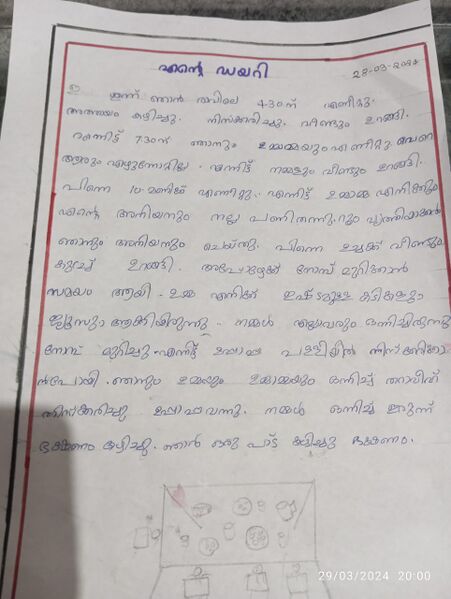 എന്റെ ഡയറി
28-03-2024
ഇന്ന് ഞാൻ രാവിലെ 4-30ന് എണീറ്റു.
അത്തായം കഴിച്ചു. നിസ്ക്കരിച്ചു. വീണ്ടും ഉറങ്ങി.
എന്നിട്ട് 7:30ന് ഞാനും ഉമ്മമ്മയും എണീറ്റു വേറെ
ആരും എഴുന്നേറ്റില്ല. എന്നിട്ട് നമ്മളും വീണ്ടും ഉറങ്ങി.
പിന്നെ 10 മണിക്ക് എണീറ്റു. എന്നിട്ട് ഉമ്മമ്മ എനിക്കും
എന്റെ അനിയനും നല്ല പണി തന്നു. റൂം വൃത്തിയാക്കാൻ
ഞാനും അനിയനും ചെയ്തു. പിന്നെ ഉച്ചക്ക് വീണ്ടും
കുറച്ച് ഉറങ്ങി. അപ്പോഴേക്ക് നോമ്പ് മുറിക്കാൻ
സമയം ആയി. ഉമ്മ എനിക്ക് ഇഷ്ടമുള്ള കടികളും
ജ്യൂസും ആക്കിയിരുന്നു. നമ്മൾ എല്ലാവരും ഒന്നിച്ചിരുന്നു
നോമ്പ് മുറിച്ചു. എന്നിട്ട് ഉപ്പാപ്പ പള്ളിയിൽ നിസ്ക്കരിക്കാ
ൻപോയി. ഞാനും ഉമ്മയും ഉമ്മമ്മയും ഒന്നിച്ച് തറാവീഹ്
നിസ്ക്കരിച്ചു ഉപ്പാപ്പവന്നു. നമ്മൾ ഒന്നിച്ച് ഇരുന്ന്
ഭക്ഷണം കഴിച്ചു. ഞാൻ ഒരു പാട് കഴിച്ചു ഭക്ഷണം.
29/03/2024 20:00